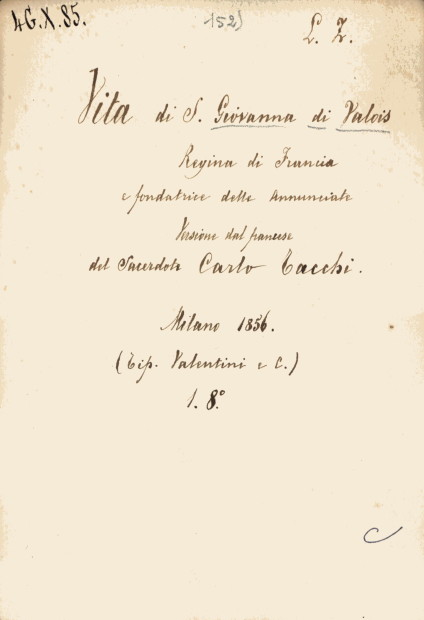 4G.X.85.
152)
L. Z.
Vita di S. Giovanna di Valois
Regina di Francia
e fondatrice delle Annunciate
Versione dal francese
del Sacerdote Carlo Tacchi.
Milano 1856.
(Tip. Valentini e C.)
1. 8°.
C